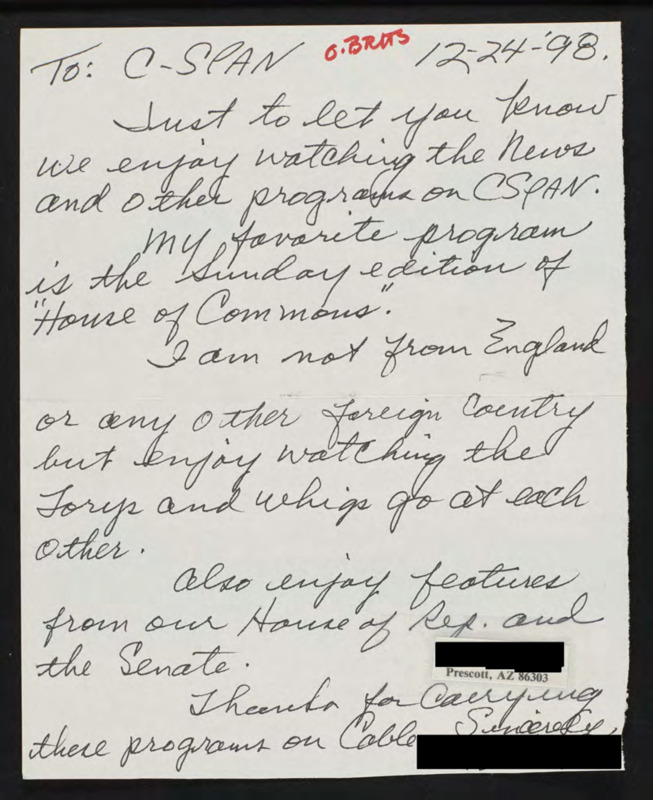 To: C-SPAN O. BRITS 12-24-'98.
Just to let you know
we enjoy watching the News
and other programs on CSPAN.
My favorite program
is the Sunday edition of
"House of Commons."
I am not from England
or any other foreign Country
but enjoy watching the
Torys and Whigs go at each
other.
Also enjoy features
from our House of Rep. and
the Senate.
Prescott, AZ 86303
Thanks for Carrying
these programs on Cable
Sincerely,